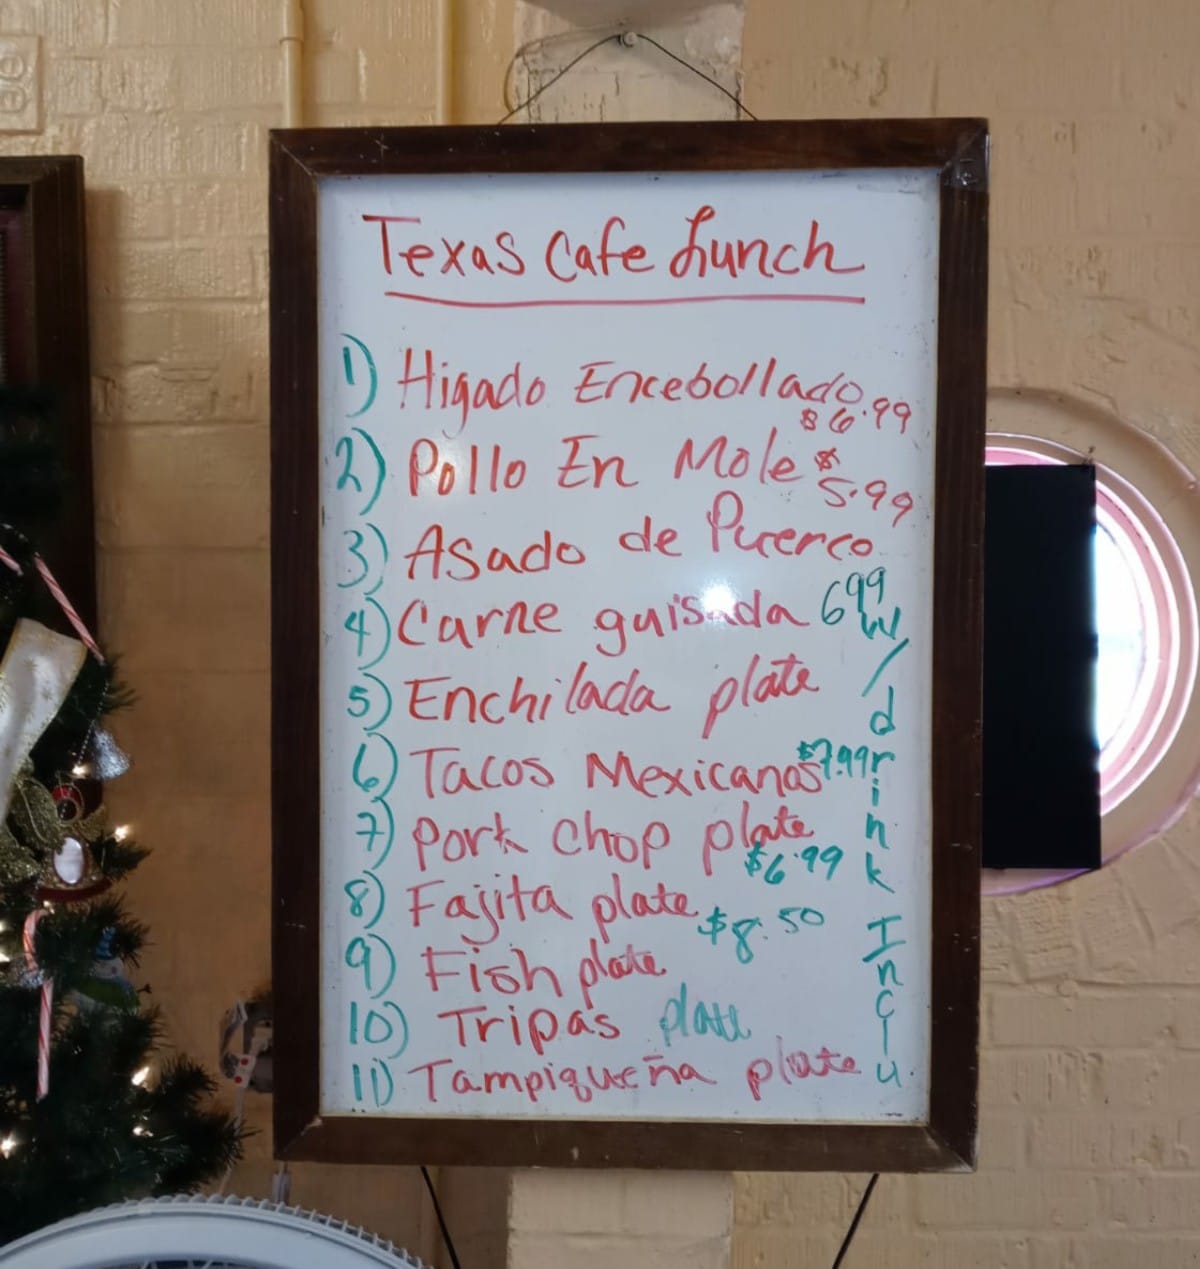 Texas Cafe Lunch
1) Higado Encebollado $6.99
2) Pollo En Mole $5.99
3) Asado de Puerco
4) Carne guisada 699
5) Enchilada plate
6) Tacos Mexicanos $7.99
7) Pork Chop plate $6.99
8) Fajita plate $8.50
9) Fish plate
10) Tripas plate
11) Tampiqueña plate
w/drink Inclu.